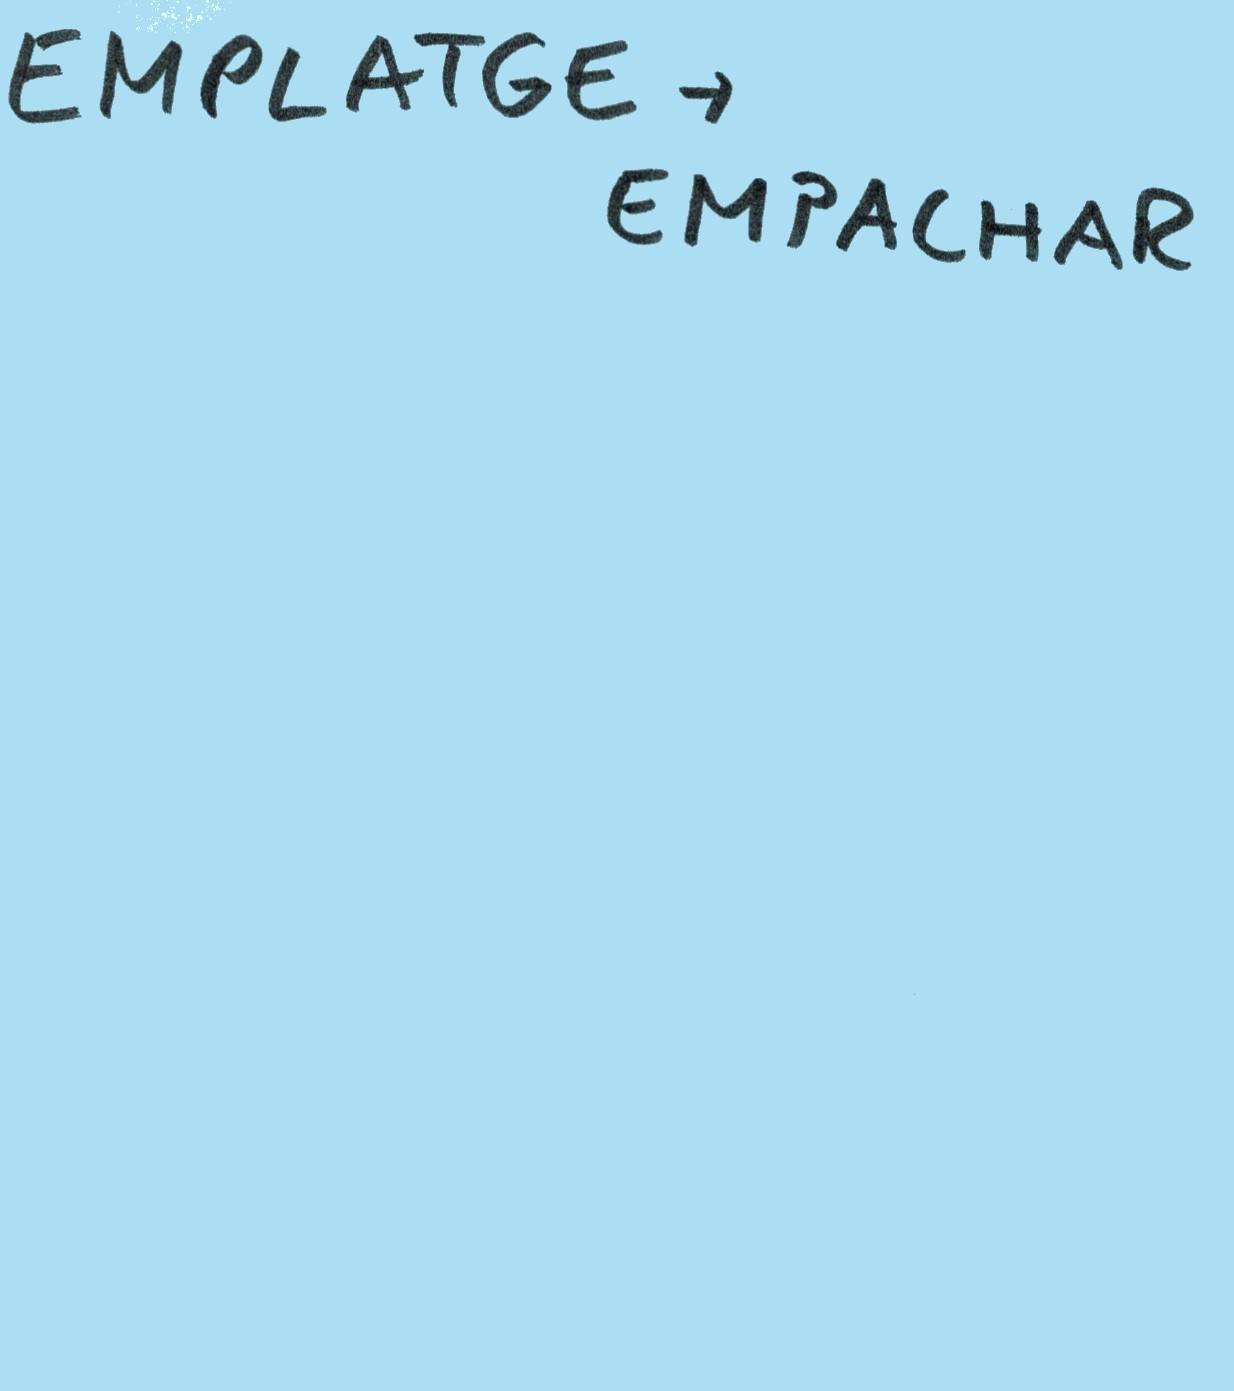 EMPLATGE →
EMPACHAR